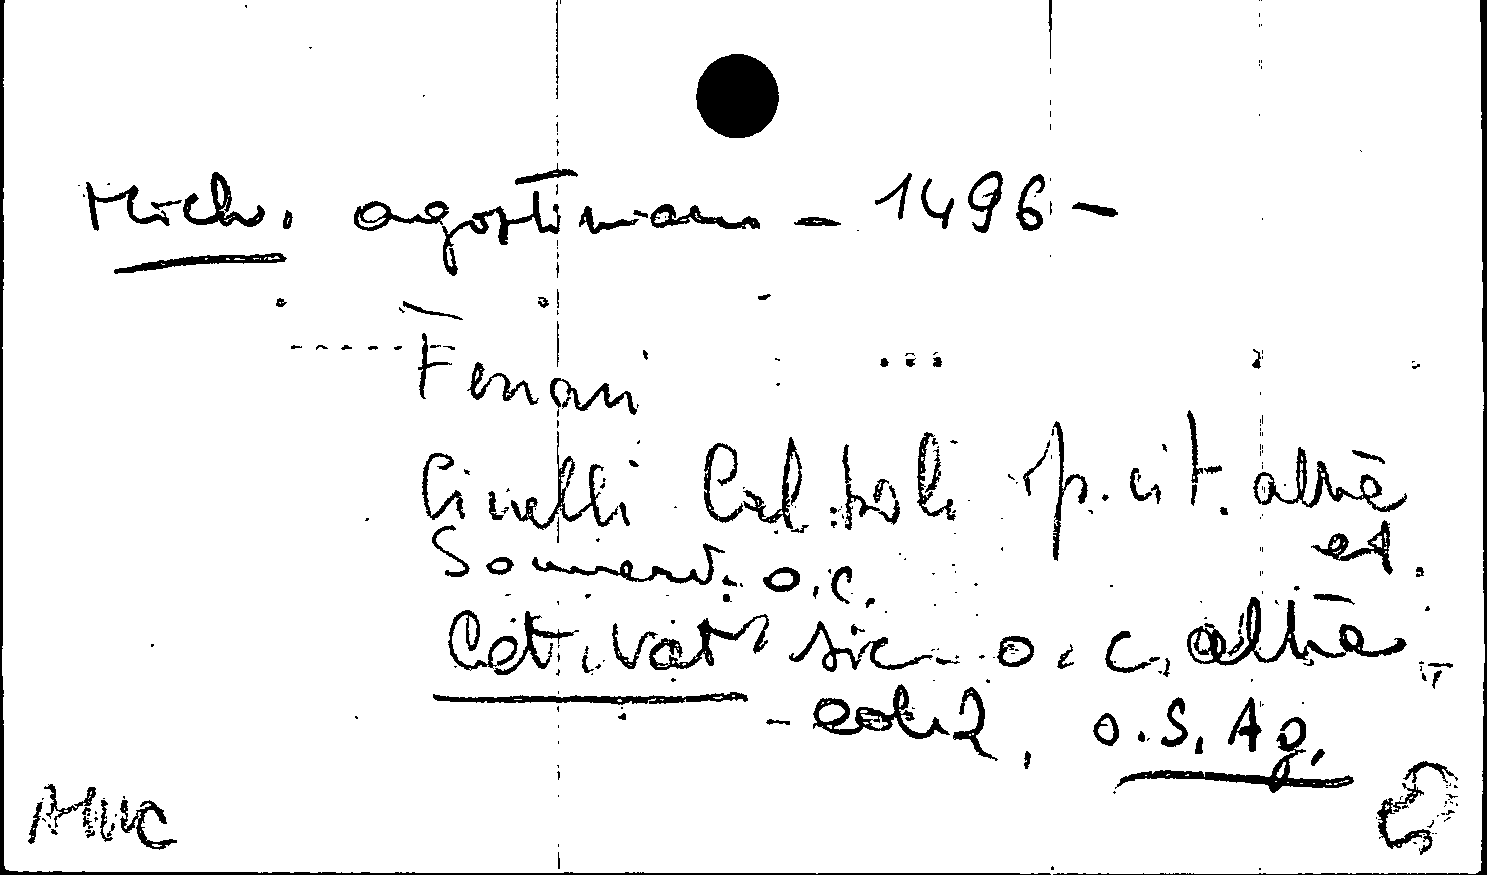 Mich. agostiniano - 1496 -
Ferrari
Cinelli Calvoli op. cit. altra
ed.
Sommerv. o.c.
Cat. Vat. sic o.c. altra
ediz., O.S. Ag.